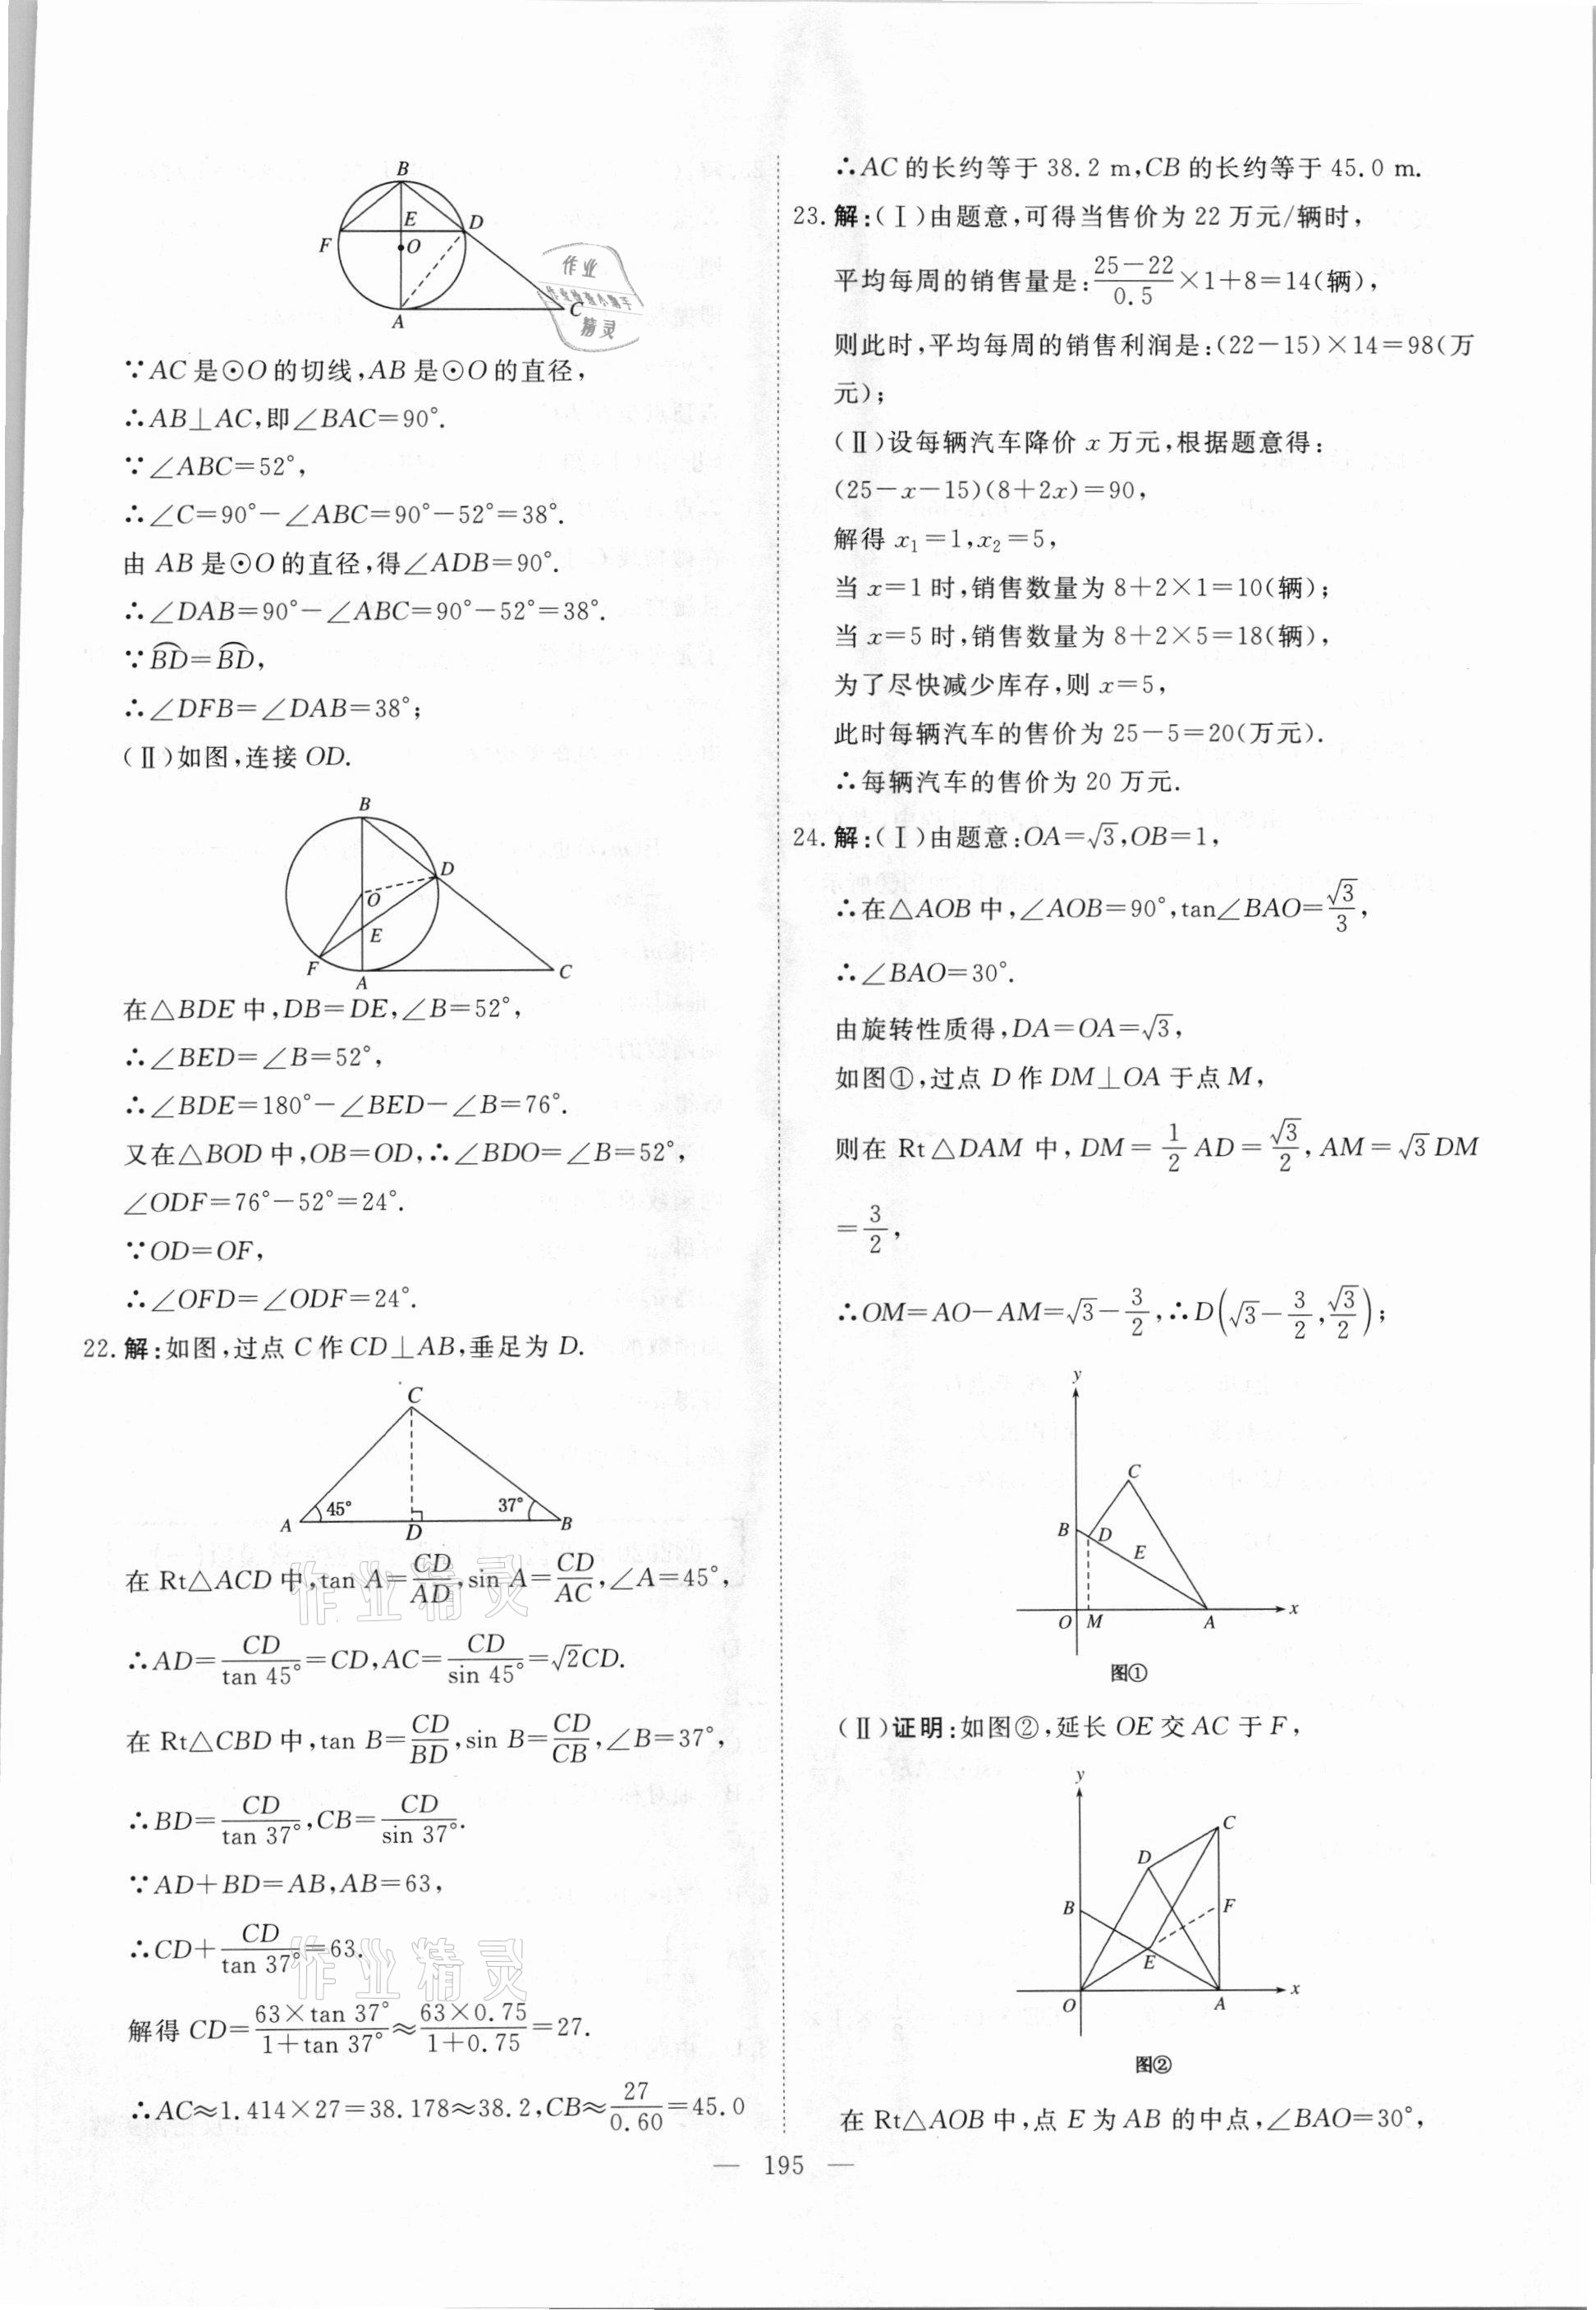 B
E
D
F
O
A
C
作业
作业检查小助手
精灵
∵AC是⊙O的切线,AB是⊙O的直径,
∴AB⊥AC,即∠BAC=90°.
∵∠ABC=52°,
∴∠C=90°−∠ABC=90°−52°=38°.
由AB是⊙O的直径,得∠ADB=90°.
∴∠DAB=90°−∠ABC=90°−52°=38°.
∵⌒BD=⌒BD,
∴∠DFB=∠DAB=38°;
(Ⅱ)如图,连接OD.
B
D
O
E
F
A
C
在△BDE中,DB=DE,∠B=52°,
∴∠BED=∠B=52°,
∴∠BDE=180°−∠BED−∠B=76°.
又在△BOD中,OB=OD,∴∠BDO=∠B=52°,
∠ODF=76°−52°=24°.
∵OD=OF,
∴∠OFD=∠ODF=24°.
22.解:如图,过点C作CD⊥AB,垂足为D.
C
45°
37°
A
D
B
在Rt△ACD中,tan A=CD/AD,sin A=CD/AC,∠A=45°,
∴AD=CD/tan 45°=CD,AC=CD/sin 45°=√2CD.
在Rt△CBD中,tan B=CD/BD,sin B=CD/CB,∠B=37°,
∴BD=CD/tan 37°,CB=CD/sin 37°.
∵AD+BD=AB,AB=63,
∴CD+CD/tan 37°=63.
解得CD=63×tan 37°/1+tan 37°≈63×0.75/1+0.75=27.
∴AC≈1.414×27=38.178≈38.2,CB≈27/0.60=45.0
作业精灵
作业精灵
∴AC的长约等于38.2 m,CB的长约等于45.0 m.
23.解:(Ⅰ)由题意,可得当售价为22万元/辆时,
平均每周的销售量是:25−22/0.5×1+8=14(辆),
则此时,平均每周的销售利润是:(22−15)×14=98(万
元);
(Ⅱ)设每辆汽车降价x万元,根据题意得:
(25−x−15)(8+2x)=90,
解得x₁=1,x₂=5,
当x=1时,销售数量为8+2×1=10(辆);
当x=5时,销售数量为8+2×5=18(辆),
为了尽快减少库存,则x=5,
此时每辆汽车的售价为25−5=20(万元).
∴每辆汽车的售价为20万元.
24.解:(Ⅰ)由题意:OA=√3,OB=1,
∴在△AOB中,∠AOB=90°,tan∠BAO=√3/3,
∴∠BAO=30°.
由旋转性质得,DA=OA=√3,
如图①,过点D作DM⊥OA于点M,
则在Rt△DAM中,DM=1/2AD=√3/2,AM=√3DM
=3/2,
∴OM=AO−AM=√3−3/2,∴D(√3−3/2,√3/2);
y
C
B
D
E
O
M
A
x
图①
(Ⅱ)证明:如图②,延长OE交AC于F,
y
C
D
B
F
E
O
A
x
图②
在Rt△AOB中,点E为AB的中点,∠BAO=30°,
— 195 —